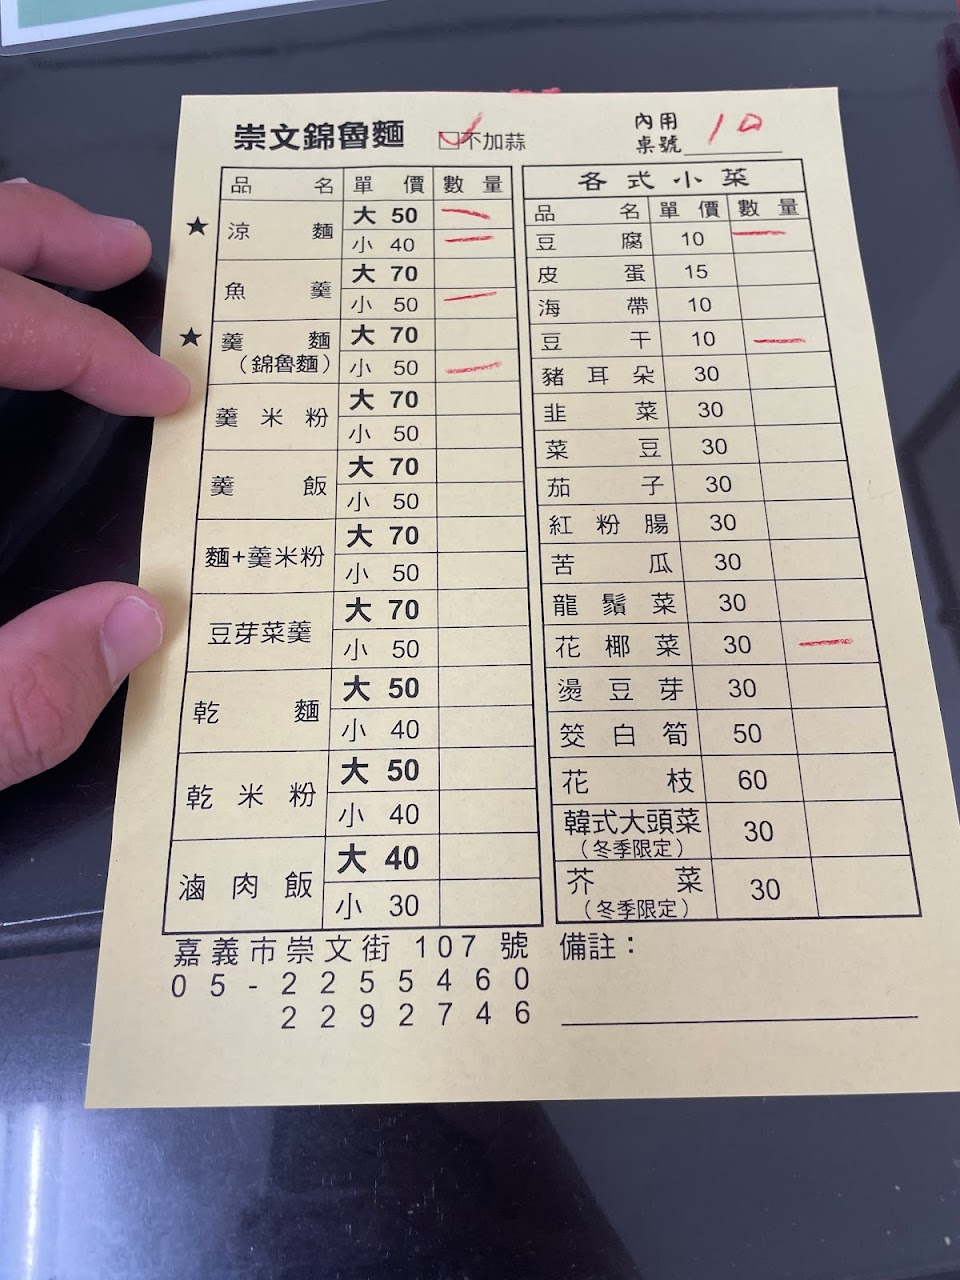 崇文錦魯麵 ☑不加蒜
內用
桌號 10
品名 單價 數量
★ 涼麵 大 50 一
小 40 一
魚羹 大 70
小 50 一
★ 羹麵 (錦魯麵) 大 70
小 50 一
羹米粉 大 70
小 50
羹飯 大 70
小 50
麵+羹米粉 大 70
小 50
豆芽菜羹 大 70
小 50
乾麵 大 50
小 40
乾米粉 大 50
小 40
滷肉飯 大 40
小 30
嘉義市崇文街 107 號
05-2255460
2292746
各式小菜
品名 單價 數量
豆腐 10 一
皮蛋 15
海帶 10
豆干 10 一
豬耳朵 30
韭菜 30
菜豆 30
茄子 30
紅粉腸 30
苦瓜 30
龍鬚菜 30
花椰菜 30 一
燙豆芽 30
筊白筍 50
花枝 60
韓式大頭菜 30
(冬季限定)
芥菜 30
(冬季限定)
備註：